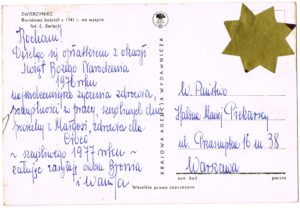 ZWIERZYNIEC
Barokowy kościół z 1741 r. na wyspie
fot. J. Świecki
Kochani!
Dzieląc się opłatkiem z okazji
Świąt Bożego Narodzenia
1976 roku
najserdeczniejsze życzenia zdrowia
pomyślności w pracy, szczęśliwych dni
pociechy z Małgosi, zdrowia dla
Cioci
~ szczęśliwego 1977 roku ~
całując zasyłają osobno Bronia
i Wanja
KRAJOWA AGENCJA WYDAWNICZA
W. Państwo
Halina Maciej Piekarscy
ul. 16 m 38
Warszawa
nr. kod
poczta
Wszelkie prawa zastrzeżone